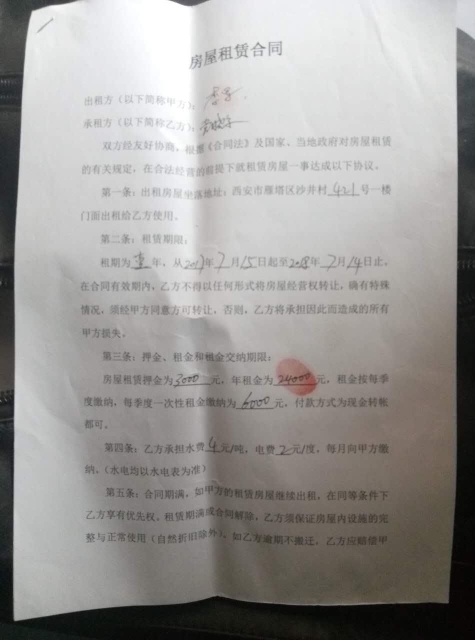 房屋租赁合同
出租方(以下简称甲方):
承租方(以下简称乙方):
双方经友好协商,根据《合同法》及国家、当地政府对房屋租赁
的有关规定,在合法经营的前提下就租赁房屋一事达成以下协议。
第一条:出租房屋坐落地址:西安市雁塔区沙井村421号一楼
门面出租给乙方使用。
第二条:租赁期限:
租期为壹年,从2017年7月15日起至2018年7月14日止,
在合同有效期内,乙方不得以任何形式将房屋经营权转让,确有特殊
情况,须经甲方同意方可转让,否则,乙方将承担因此而造成的所有
甲方损失。
第三条:押金、租金和租金交纳期限:
房屋租赁押金为3000元,年租金为24000元,租金按每季
度缴纳,每季度一次性租金缴纳为6000元,付款方式为现金转帐
都可。
第四条:乙方承担水费4元/吨,电费2元/度,每月向甲方缴
纳。(水电均以水电表为准)
第五条:合同期满,如甲方的租赁房屋继续出租,在同等条件下
乙方享有优先权。租赁期满或合同解除,乙方须保证房屋内设施的完
整与正常使用(自然折旧除外),如乙方逾期不搬迁,乙方应赔偿甲